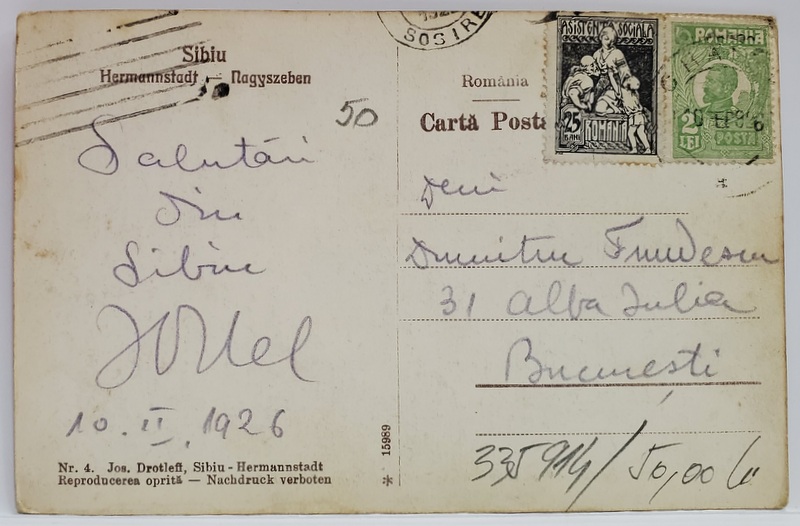 Sibiu
Hermannstadt — Nagyszeben
50
Salutări
din
Sibiu
10. II. 1926
Nr. 4. Jos. Drotleff, Sibiu - Hermannstadt
Reproducerea oprită — Nachdruck verboten
15989
*
SOSIRE
România
Cartă Posta
ASISTENȚA SOCIALA
25
BANI
ROMANIA
România
2
LEI
POSTA
Dumitru
31 Alba Iulia
București
335914/50,00 lei